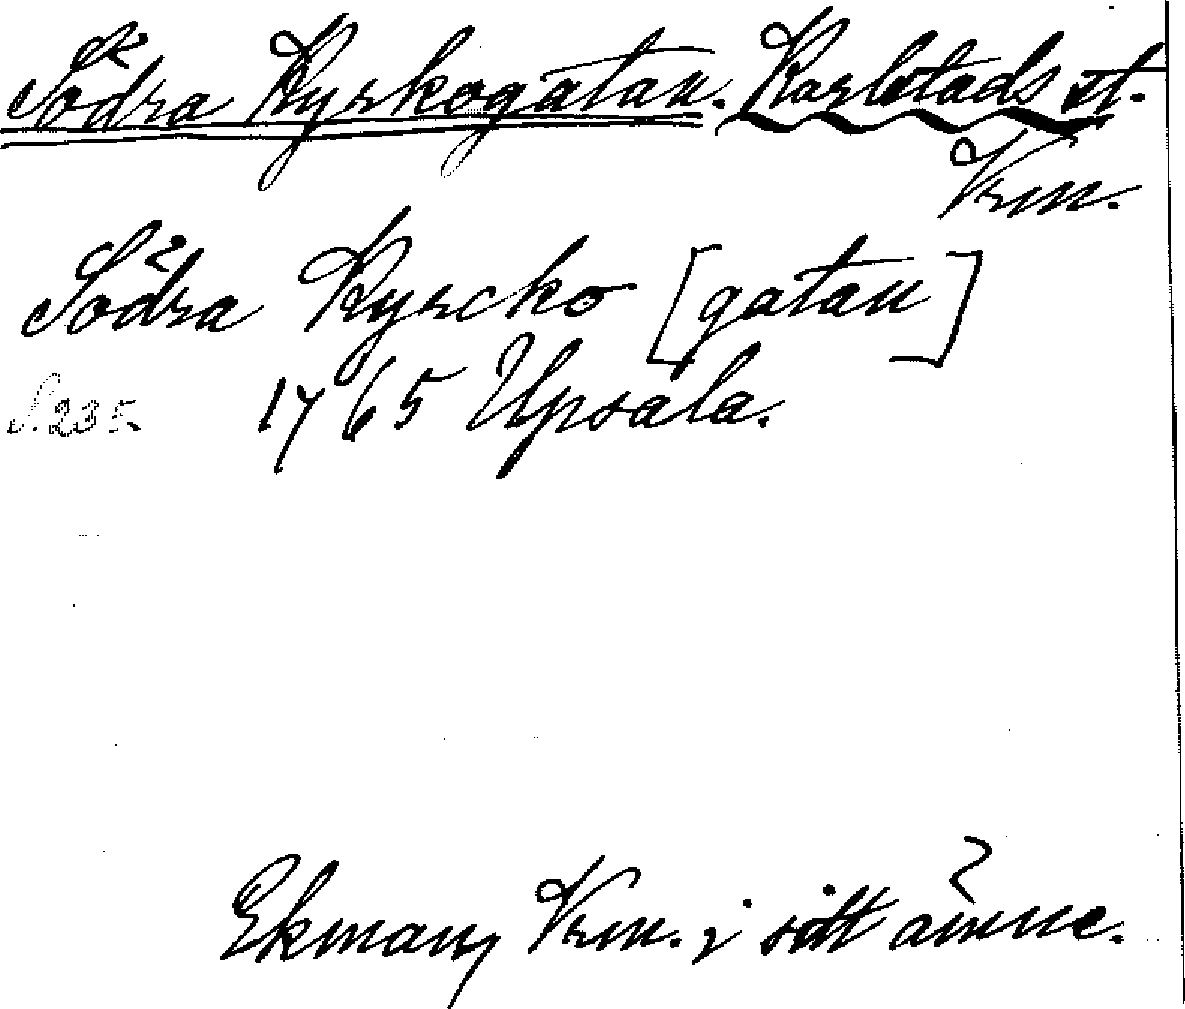 Södra Kyrkogatan. Karlstads st.
Vrm.
Södra Kyrcko [gatan]
S. 235. 1765 Upsala.
Ekman, Vrm. i sitt ämne.